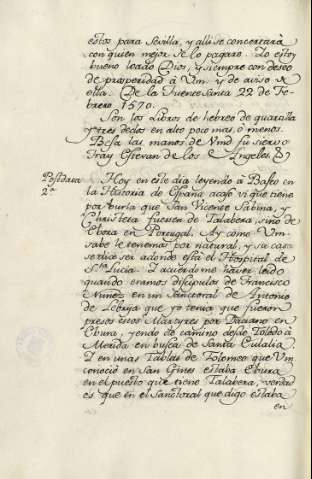 estos para Sevilla, y alli se concertara
con quien mejor se lo pagare. Yo estoy
bueno loado Dios, y siempre con deseo
de prosperidad â Vm. y de aviso de
ella. De la Fuensanta 22 de Fe-
brero 1570.
Son los Libros de hebreo de quarilla
y tres dedos en alto poco mas, o menos.
Besa las manos de Vmd su siervo
Fray Estevan de los Angeles
Postdata 2ª
Hoy en este dia leyendo â Baseo en
la Historia de España acaso vi que tiene
por burla que San Vicente, Sabina, y
Christeta fuesen de Talabera, sino de
Ebora en Portugal. Ay como Vm.
sabe le tenemos por natural, y su casa
se dice ser adonde està el Hospital de
Sta. Lucia. I acuerdome haver leido
quando eramos discipulos de Francisco
Nuñez en un Sanctoral de Antonio
de Lebrija que yo tenia que fueron
presos estos Martyres por Daciano en
Ebura, yendo de camino desde Toledo â
Merida en busca de Santa Eulalia.
I en unas Tablas de Tolemeo que Vm
conoció en San Gines estaba Ebura
en el puesto que tiene Talabera, verdad
es que en el Sanctoral que digo estaba
en